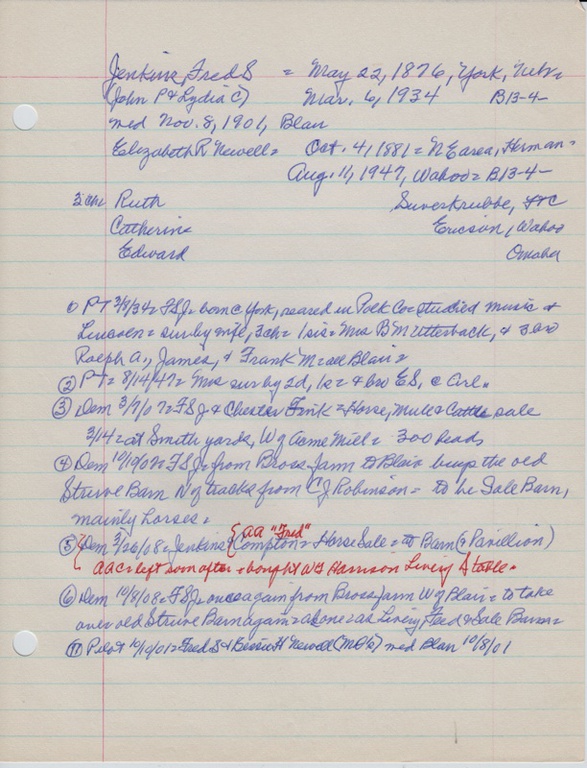 Jenkins, Fred S = May 22, 1876, York, Nebr=
(John P & Lydia C) Mar. 6, 1934 B13-4-
med Nov. 8, 1901, Blair
Elizabeth R Newell= Oct. 4, 1881= N Earea, Herman=
Aug. 11, 1947, Wahoo= B13-4-
3 chn Ruth Suverkrubbe,
Catherine Ericson, Wahoo
Edward Omaha
① PT 3/8/34= FSJ= born c York, reared in Polk Co= studied music @
Lincoln= sur by wife, 3 ch= 1 sis= Mrs B M Utterback, & 3 bro
Ralph A., James, & Frank M= all Blair=
② PT= 8/14/47= Mrs sur by 2d, 1s= & bro ES, @ Arl.=
③ Dem 3/7/07= FSJ & Chester Fink= Horse, Mule & Cattle sale
3/14= at Smith yards, W of Acme Mill= 300 heads
④ Dem FSJ= from Bross farm to Blair buys the old
Struve Barn N of tracks from C J Robinson= to be Sale Barn,
mainly horses=
{AA "Fred"
⑤ Dem 3/26/08= Jenkins & Compton= Horse Sale= Barn (& Pavillion)
AAC left soon after= bought WG Harrison Livery Stable=
⑥ Dem 10/8/08= FSJ= once again from Bross farm W of Blair= to take
over old Struve Barn again= alone= as Livery Feed & Sale Barn=
⑪ Pilot 10/10/01= Fred S & Newell med Blair 10/8/01